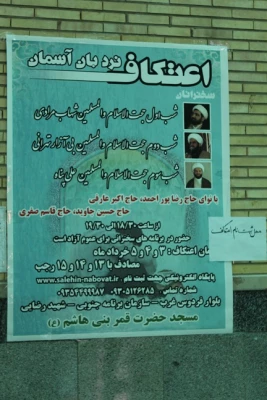 اعتکاف نردبان آسمان
سخنرانان
شب اول حجت الاسلام والمسلمین شهاب مرادی
شب دوم حجت الاسلام والمسلمین بی آزار تهرانی
شب سوم حجت الاسلام والمسلمین علی پناه
با نوای حاج رضا پور احمد، حاج اکبر عارفی
حاج حسین جاوید، حاج قاسم صفری
از ساعت ۱۸/۳۰ الی ۱۹/۳۰
حضور در برنامه های سخنرانی برای عموم آزاد است
زمان اعتکاف: ۳ و ۴ و ۵ خرداد ماه
مصادف با ۱۳ و ۱۴ و ۱۵ رجب
پایگاه الکترونیکی جهت ثبت نام
www.salehin-nabovat.ir
شماره تماس ۰۹۳۰۵۱۲۶۲۸۵ - ۰۹۳۵۴۴۹۹۹۸۷
بلوار فردوس غرب - سازمان برنامه جنوبی - شهید رضایی
مسجد حضرت قمر بنی هاشم (ع)
محل ثبت نام اعتکاف